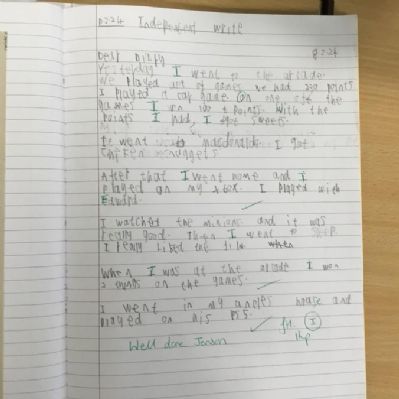 Independent write
Dear Diary
Yesterday I went to the arcade
We played lot of games we had 250 points
I played a car game on one off the
games I won 100 points with the
points I had I got sweets.
I went macdonalds I got
chicken nuggets
After that I went home and I
played on my xbox. I played with
Edward.
I watched the minions and it was
really good. then I went to sleep.
I really liked the film
When I was at the arcade I won
on the games.
I went in my uncles house and
played on his PS5.
Well done
1hp